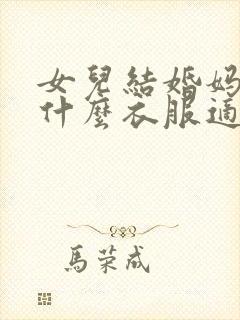 女兒結婚妈
什麼衣服適
馬荣成